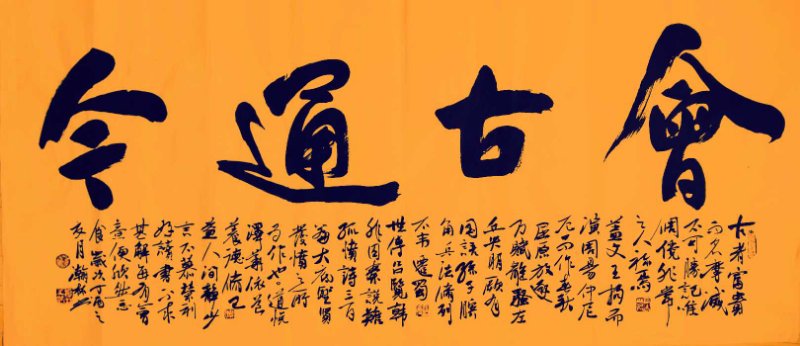 會古通今
古者富貴
而名摩滅
不可勝記唯
倜儻非常
之人稱焉
蓋文王拘而
演周易仲尼
厄而作春秋
屈原放逐
乃賦離騷左
丘失明厥有
國語孫子臏
兵法脩列
不韋遷蜀
世傳呂覽韓
非囚秦說難
孤憤詩三百
篇大底聖賢
發憤之所
為作也
人间静少
言不慕榮利
好讀書不求
甚解每有會
意便欣然忘
食歲次丁酉之